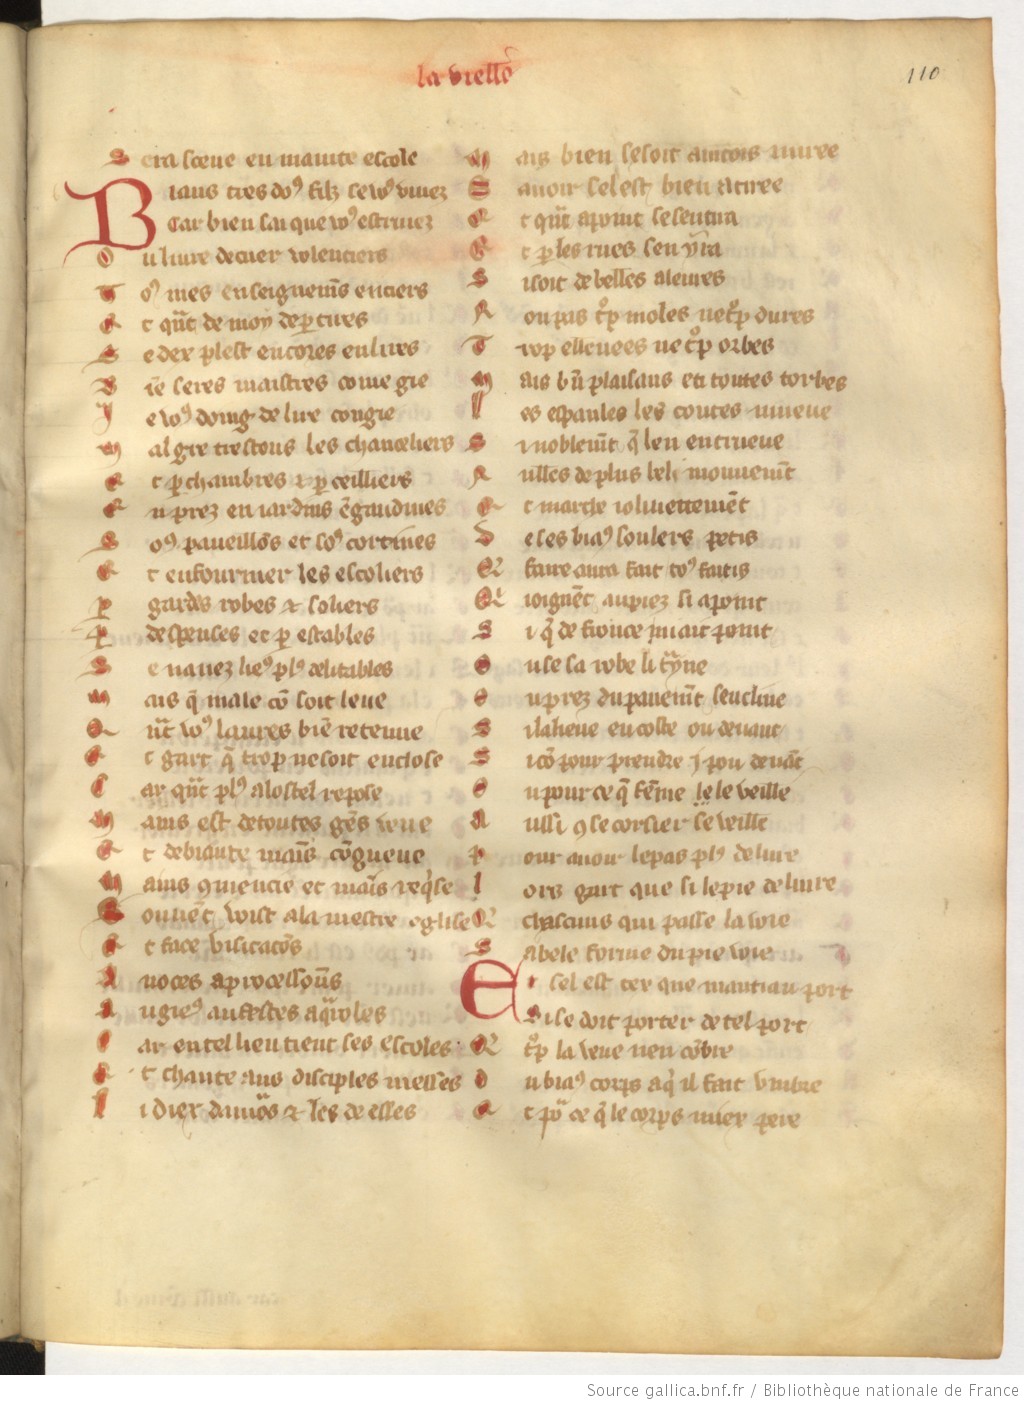 la viellē
110
S era sceue en mainte escole
B iaus tres doꝰ filz se woꝰ viuez
Car bien sai que woꝰ estriuez
O u liure de cuer wolentiers
T oꝰ mes enseignemēs entiers
E t qūt de moy departires
S e dex plest encores en lires
B iē seres maistres come gie
J e woꝰ doing de lire congie
M algre trestous les chanceliers
E t p chambres et p ceilliers
E n prez en iardins ē gaudines
S oꝰ paueillōs et soꝰ cortines
E t enfourmer les escoliers
P gardes robes et soliers
P despenses et p estables
S e nauez lieꝰ plꝰ delitables
M ais q̄ male cō soit leue
Q ūt woꝰ laures biē retenue
E t gart q̄ trop ne soit enclose
C ar qūt plꝰ a lostel repose
M ains est de toutes gēs veue
E t de biaute mains cōgneue
M ains ꝯuienciē et maīs reqise
S ouuēt voist a la mestre eglise
E t face visitaciōs
A noces a processiōns
A ugieꝰ au festes a qūroles
C ar en tel lieu tient ses escoles
E t chante aus disciples messes
L i diex damōs et les deesses
M ais bien se soit aincois miree
S auoir sel est bien atiree
E t qūt a point se sentira
E t p les rues sen yra
S i soit de belles aleures
N ou pas trop moles ne trop dures
T rop elleuees ne trop corbes
M ais bn̄ plaisans en toutes torbes
L es espaules les coutes mueue
S i noblemēt q̄ len en trueue
N ulles de plus bel mouuemēt
E t marche ioliuettemēt
D e ses biaꝰ soulers petis
Q faire aura fait toꝰ faitis
Q i ioignēt au piez si a point
S i q̄ de fronce ni ait point
E u se sa robe li trayne
O u prez du pauemēt sencline
S i la lieue en coste ou deuant
S i cō pour prendre j pou de uāt
O u pour ce q̄ feme se le veille
A ussi ꝯ le corsier se veille
P our auoir le pas plꝰ deliure
L ors gart que si le pie deliure
Q chascuns qui passe la voie
S a bele forme du pie voie
E t sel est tex que mantiau port
Si le doit porter de tel port
Q trop la veue nen cōbre
D u biaꝰ corps a q̄ il fait vmbre
E t por ce q̄ le corps miex pere
Source gallica.bnf.fr / Bibliothèque nationale de France